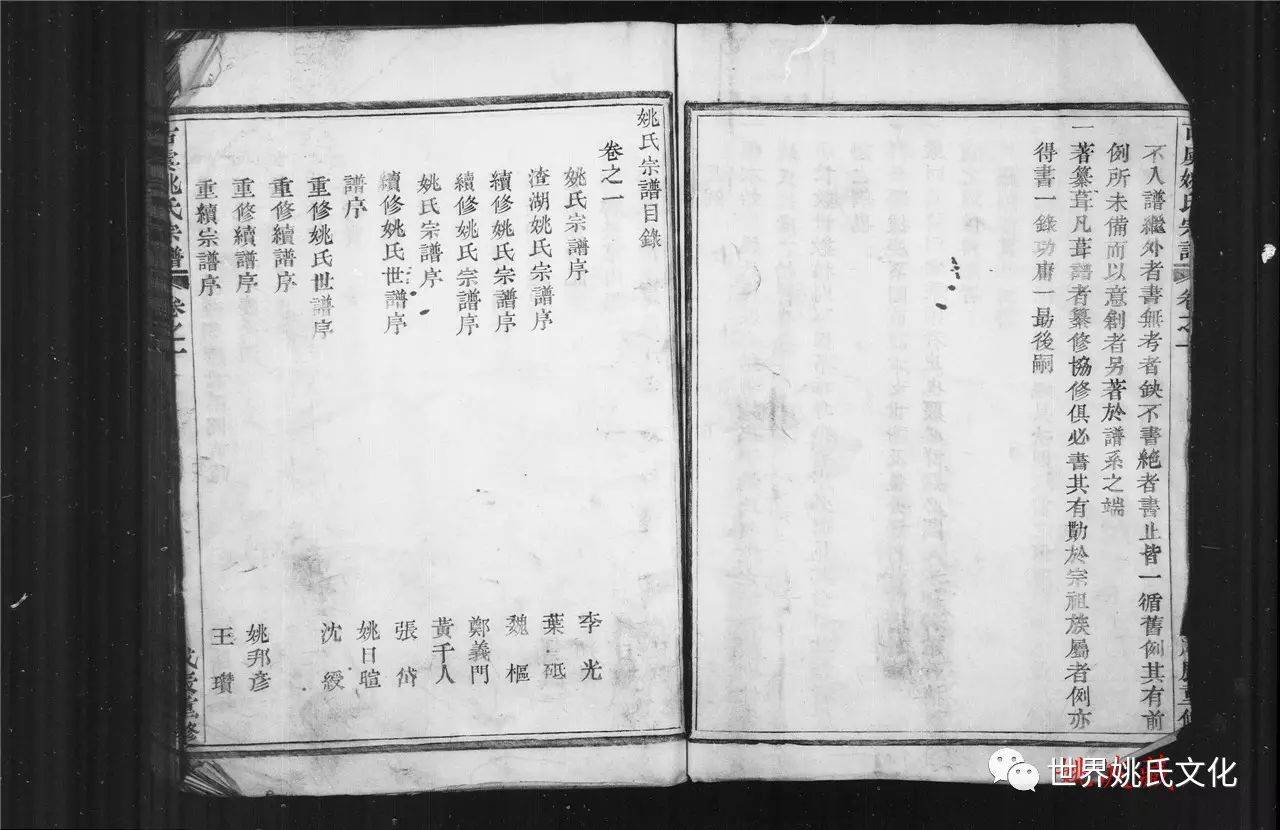 不入譜繼外者書無考者缺不書絶者書止皆一循舊例其有前
例所未備而以意創者另著於譜系之端
一著纂葺凡葺譜者纂修協修俱必書其有勤於宗祖族屬者例亦
得書一錄功庸一勗後嗣
姚氏宗譜目錄
卷之一
姚氏宗譜序 李光
渣湖姚氏宗譜序 葉砥
續修姚氏宗譜序 魏樞
續修姚氏宗譜序 鄭義門
姚氏宗譜序 黃千人
續修姚氏世譜序 張岱
譜序 姚日暄
重修姚氏世譜序 沈綬
重修續譜序
重修續譜序 姚邦彥
重續宗譜序 王瓚
姚氏宗譜 卷之一
世界姚氏文化